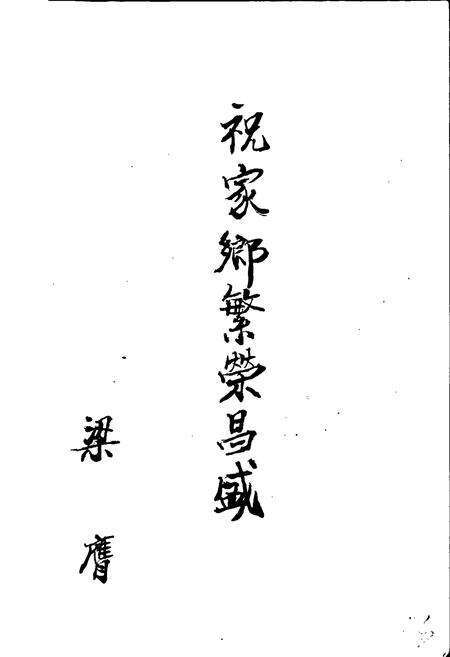 祝家鄉繁榮昌盛
梁膺